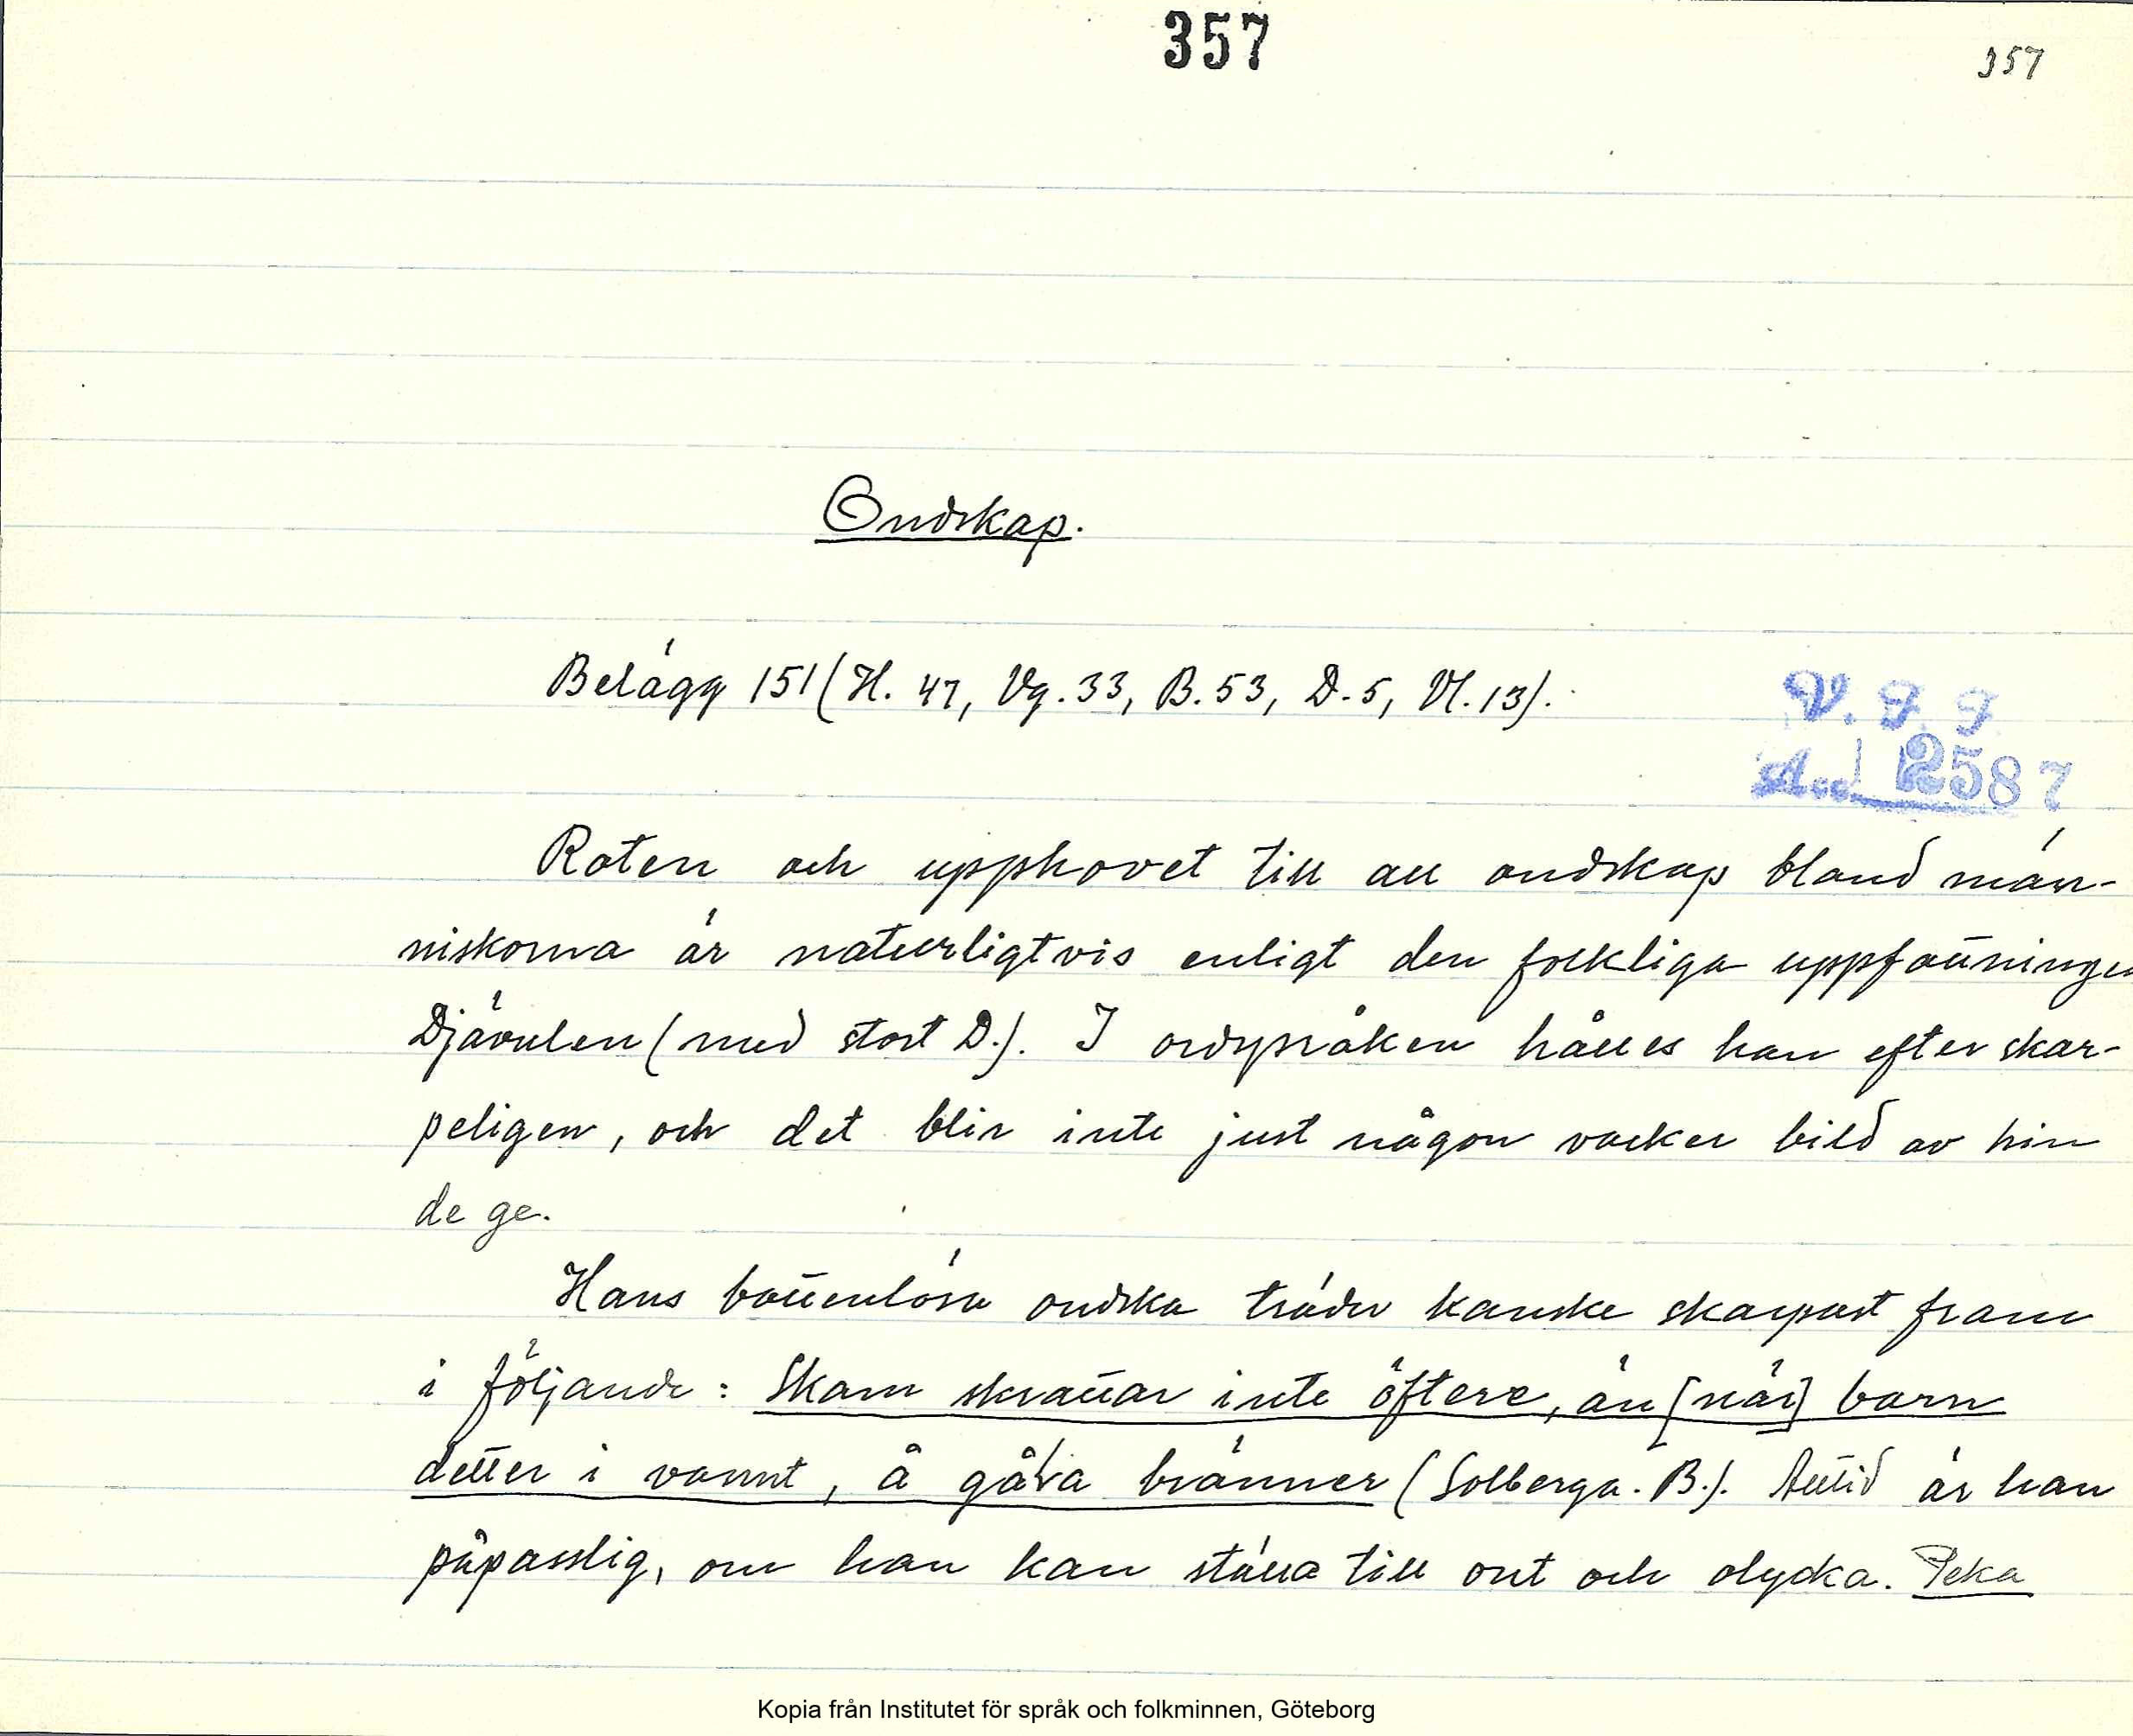 357
357
Ondskap.
Belägg 151 (H. 47, Vg. 33, B. 53, D. 5, Vl. 13).
V. F. F
Acc. 2587
Roten och upphovet till all ondskap bland män-
niskorna är naturligtvis enligt den folkliga uppfattningen
Djävulen (med stort D.). I ordspråken hålles han efter skar-
peligen, och det blir inte just någon vacker bild av hin
de ge.
Hans bottenlösa ondska träder kanske skarpast fram
i följande: Skam skrattar inte öftere, än [när] barn
detter i vannt, å gåla bränner (Solberga. B.). Alltid är han
påpasslig, om han kan ställa till ont och olycka. Peka
Kopia från Institutet för språk och folkminnen, Göteborg